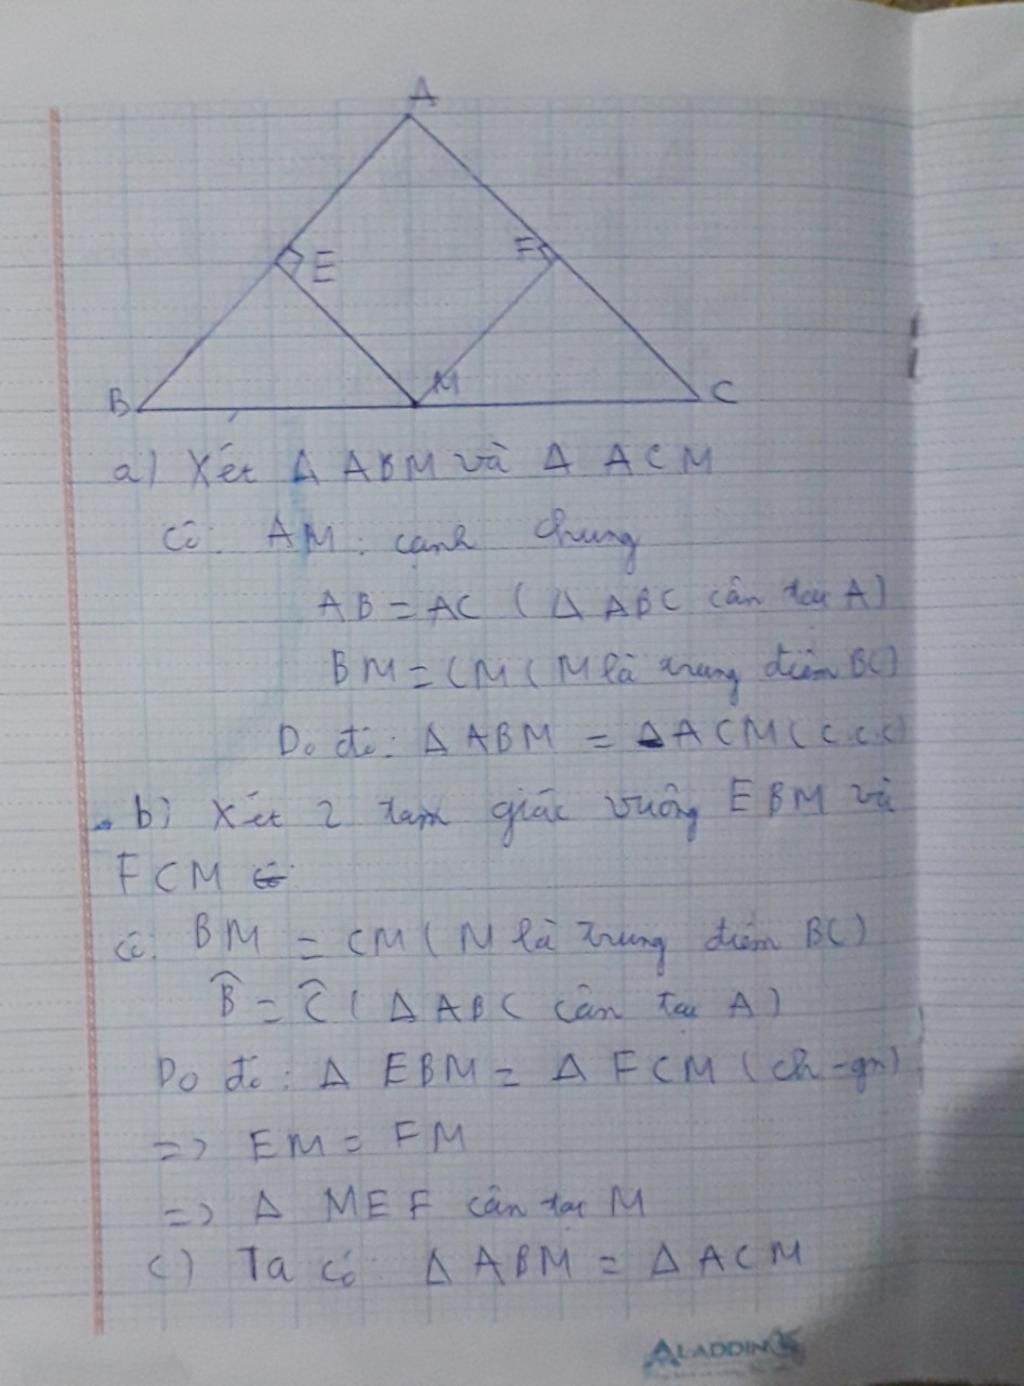 A
E
F
B
M
C
a) Xét Δ ABM và Δ ACM
Có: AM: cạnh chung
AB = AC (Δ ABC cân tại A)
BM = CM (M là trung điểm BC)
Do đó: Δ ABM = Δ ACM (c.c.c)
b) Xét 2 tam giác vuông EBM và
FCM
có: BM = CM (M là trung điểm BC)
B̂ = Ĉ (Δ ABC cân tại A)
Do đó: Δ EBM = Δ FCM (ch-gn)
=> EM = FM
=> Δ MEF cân tại M
c) Ta có: Δ ABM = Δ ACM
ALADDIN